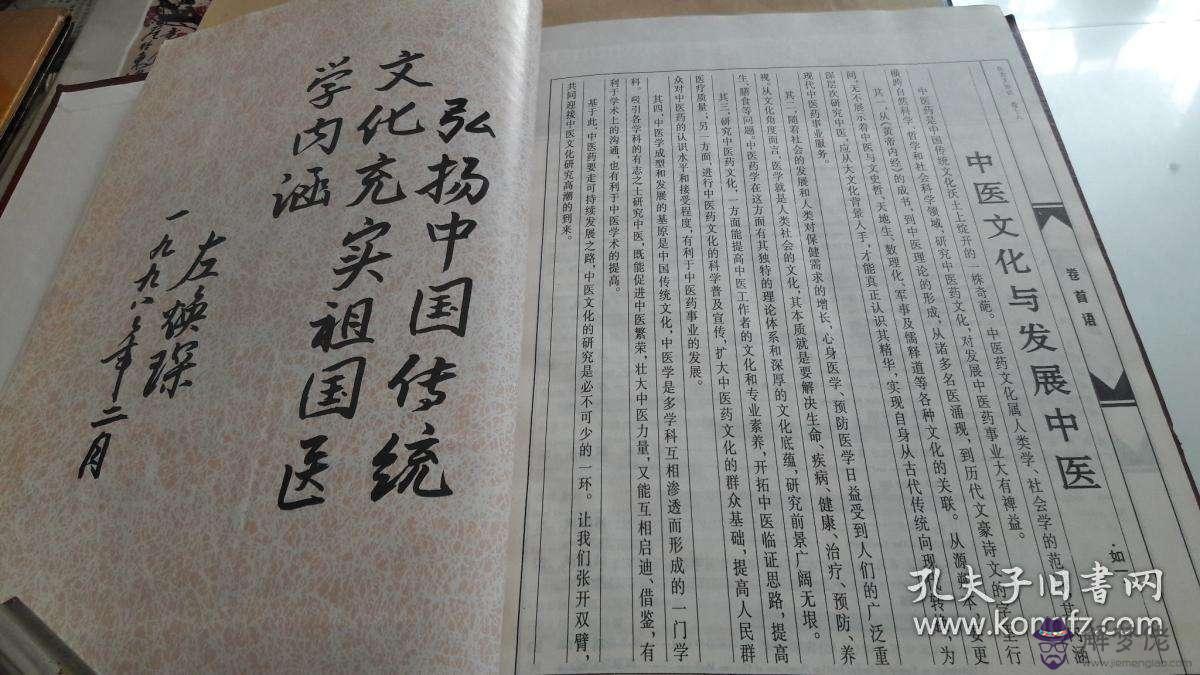 卷首语
中医文化与发展中医
·如一
中医药是中国传统文化沃土上绽开的一株奇葩。中医药文化属人类学、社会学的范 其内涵
横跨自然科学、哲学和社会科学领域，研究中医药文化，对发展中医药事业大有裨益。
其一，从《黄帝内经》的成书，到中医理论的形成，从诸多名医涌现，到历代文豪诗文的字里行
间，无不展示着中医与文史哲、天地生、数理化、军事及儒释道等各种文化的关联。从源 本 更
深层次研究中医，应从大文化背景入手，才能真正认识其精华，实现自身从古代传统向现 转 为
现代中医药事业服务。
其二，随着社会的发展和人类对保健需求的增长，心身医学、预防医学日益受到人们的广泛重
视，从文化角度而言，医学就是人类社会的文化，其本质就是要解决生命、疾病、健康、治疗、预防、养
生、膳食等问题。中医药学在这方面有其独特的理论体系和深厚的文化底蕴，研究前景广阔无垠。
其三，研究中医药文化，一方面能提高中医工作者的文化和专业素养，开拓中医临证思路，提高
医疗质量；另一方面，进行中医药文化的科学普及宣传，扩大中医药文化的群众基础，提高人民群
众对中医药的认识水平和接受程度，有利于中医药事业的发展。
其四，中医学成型和发展的基原是中国传统文化，中医学是多学科互相渗透而形成的一门学
科。吸引各学科的有志之士研究中医，既能促进中医繁荣，壮大中医力量，又能互相启迪、借鉴，有
利于学术上的沟通，也有利于中医学术的提高。
基于此，中医药要走可持续发展之路，中医文化的研究是必不可少的一环。让我们张开双臂，
共同迎接中医文化研究高潮的到来。
弘扬中国传统
文化充实祖国医
学内涵
左焕琛
一九九八年二月
孔夫子旧书网
www.kongfz.com
解梦佬
www.jiemenglao.com